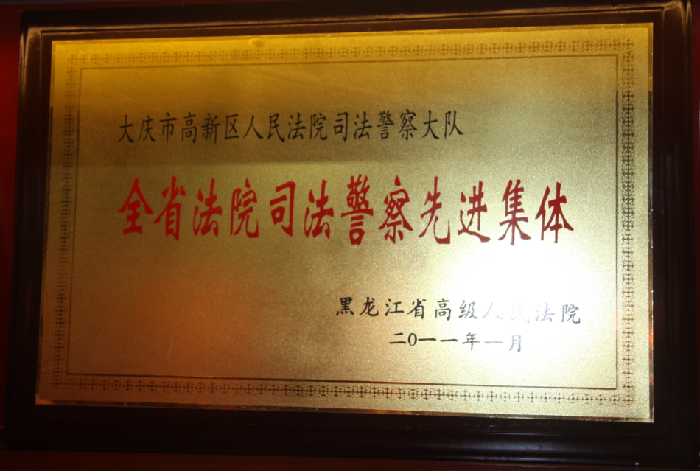 大庆市高新区人民法院司法警察大队
全省法院司法警察先进集体
黑龙江省高级人民法院
二〇一一年一月